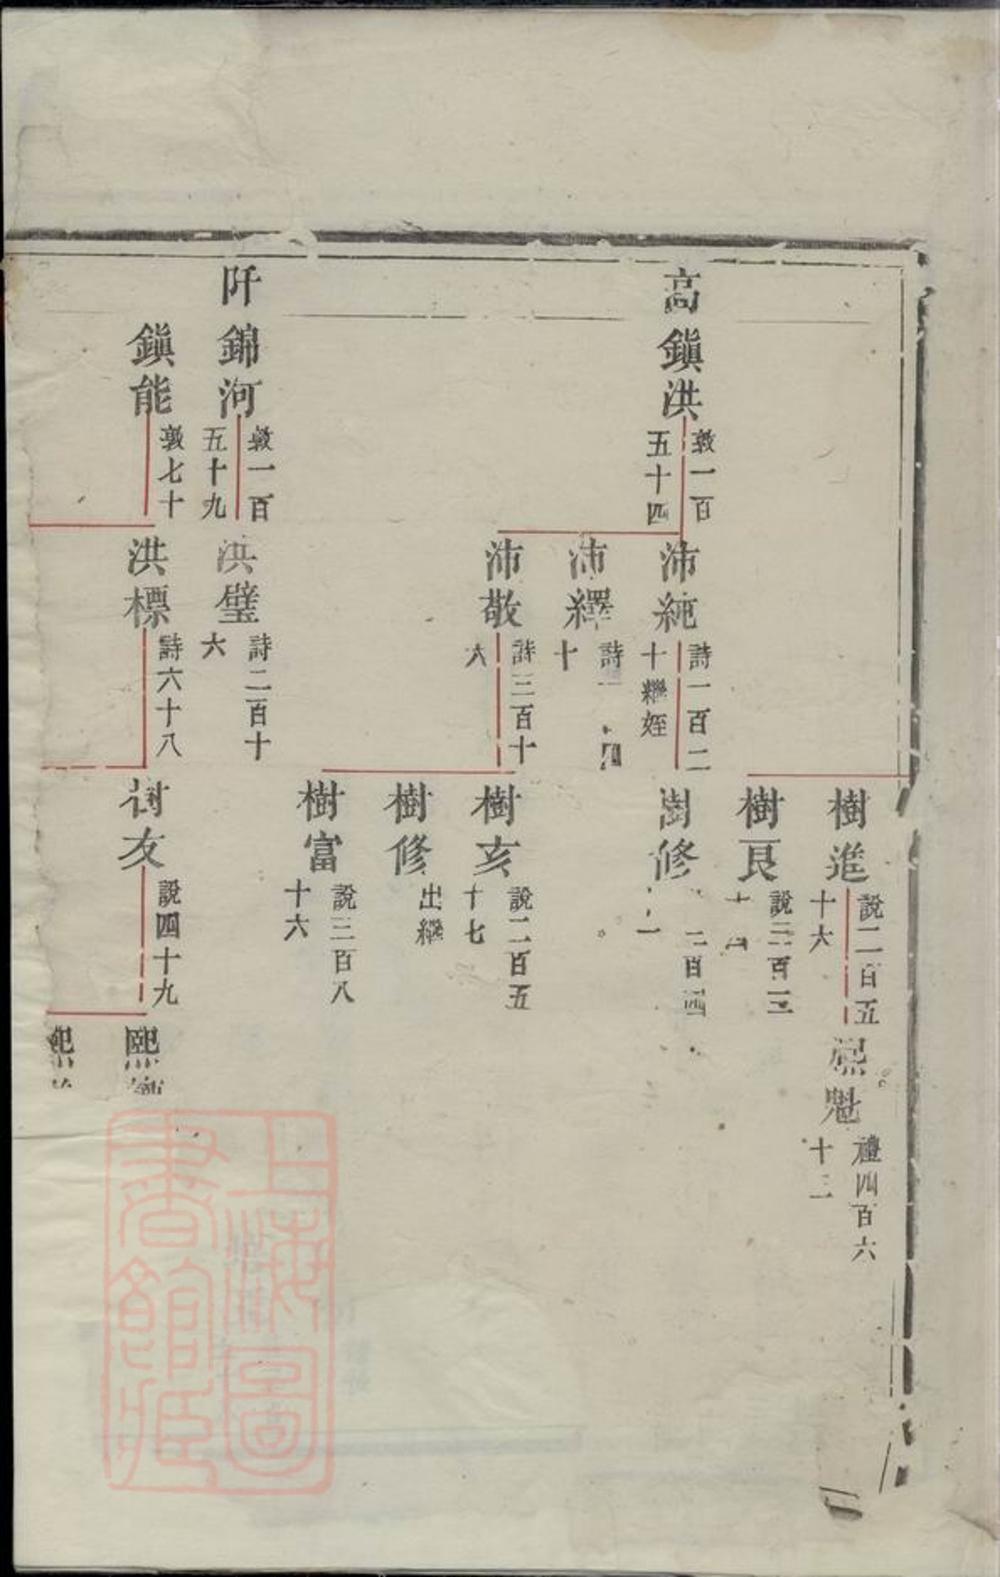 樹進
說二百五
十六
熙魁
禮四百六
十二
樹艮
說三百二
樹修
二百四
高鎮洪
敦一百
五十四
沛純
詩一百二
十繼姪
沛繹
詩
十
沛敬
詩三百十
六
樹亥
說二百五
十七
樹修
出繼
樹富
說三百八
十六
阡錦河
敦一百
五十九
洪璧
詩二百十
六
鎮能
敦七十
洪標
詩六十八
樹友
說四十九
熙
熙
上海圖
書館藏